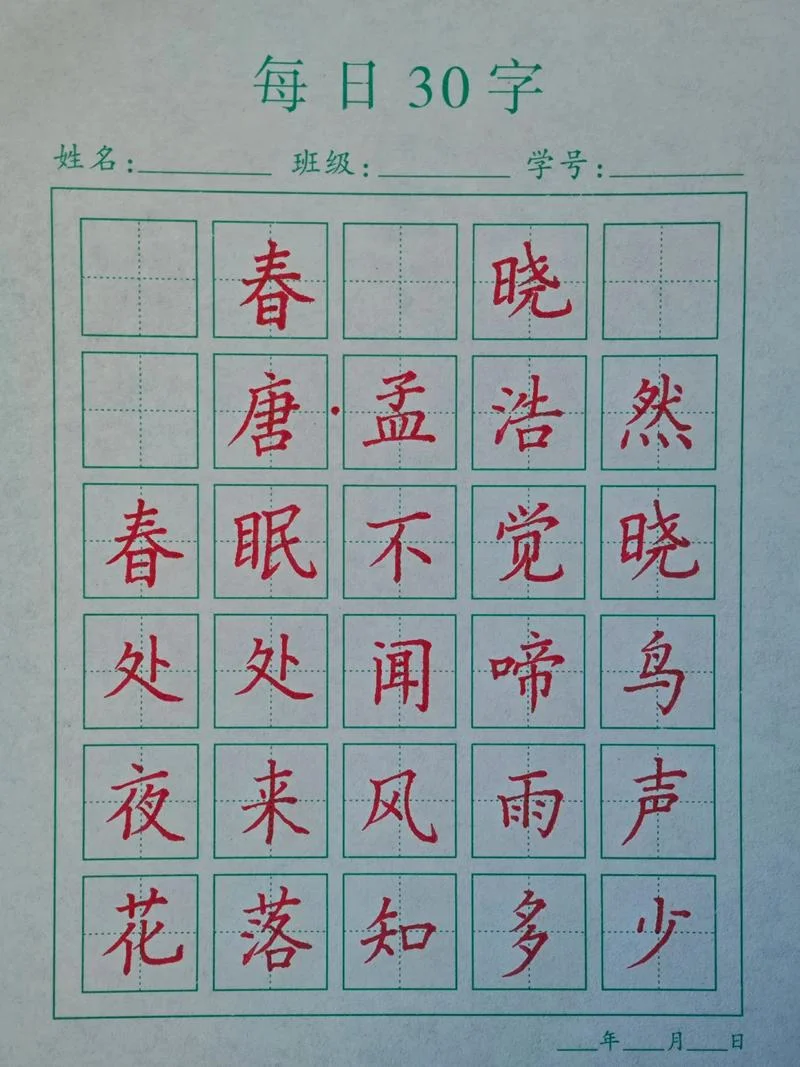 每日30字
姓名:______ 班级:______ 学号:______
春晓
唐·孟浩然
春眠不觉晓
处处闻啼鸟
夜来风雨声
花落知多少
___年___月___日